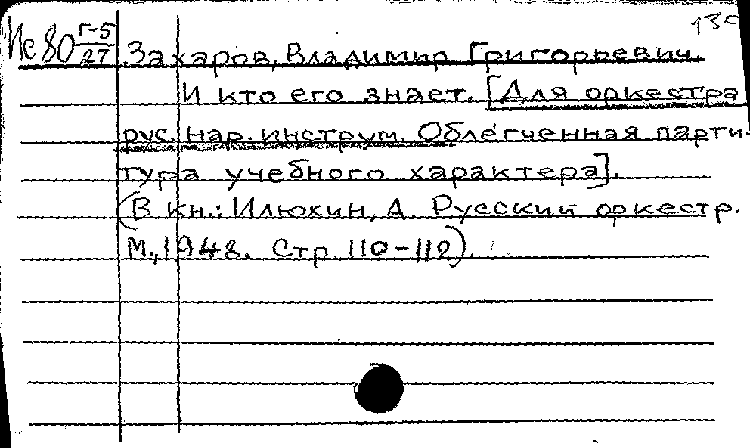 Ис 80 Г-5/27 Захаров, Владимир Григорьевич.
И кто его знает. [Для оркестра
рус. нар. инструм. Облегченная парти-
тура учебного характера].
(В кн.: Илюхин, А. Русский оркестр.
М., 1948. Стр. 110-112).